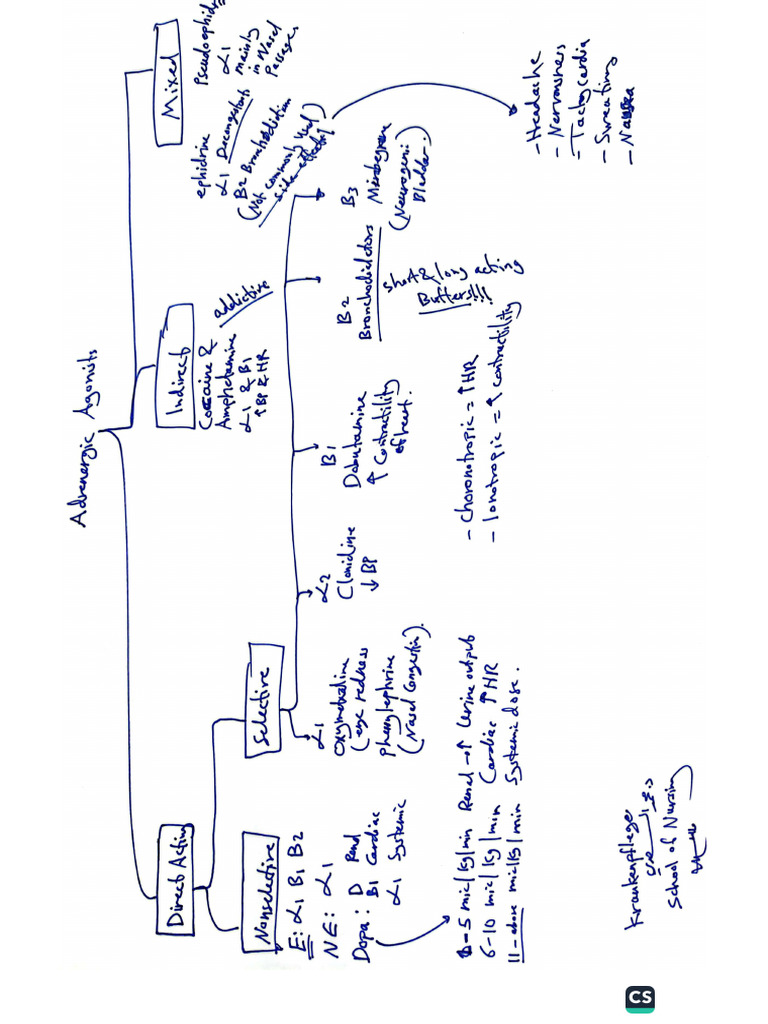 Adrenergic Agonists
Direct Acting
Indirect
Mixed
Nonselective
E: α1 B1 B2
NE: α1
Dopa: D Renal
B1 Cardiac
α1 Systemic
Selective
α1
Oxymetazoline
(eye redness
phenylephrine
(Nasal Congestion).
α2
Clonidine
↓ BP
B1
Dobutamine
↑ Contractility
of heart.
B2
Bronchodilators
short & long acting
Buffers!!!
B3
Mirabegrone
(Neurogenic
Bladder.)
Cocaine &
Amphetamine
α1 & B1
↑ BP & HR
addictive
ephidrine
α1 Decongestants
B2 Bronchodilation
(Not commonly used
side effects)
Pseudoephidrine
α1
mainly
in Nasal
Passages
- Headache
- Nervousness
- Tachycardia
- Sweating
- Nausea
- Choronotropic = ↑ HR
- Ionotropic = ↑ contractility
-5 mic/kg/min Renal → ↑ Urine output
6-10 mic/kg/min Cardiac ↑ HR
11-above mic/kg/min Systemic dose.
Krankenpflege
School of Nursing
CS